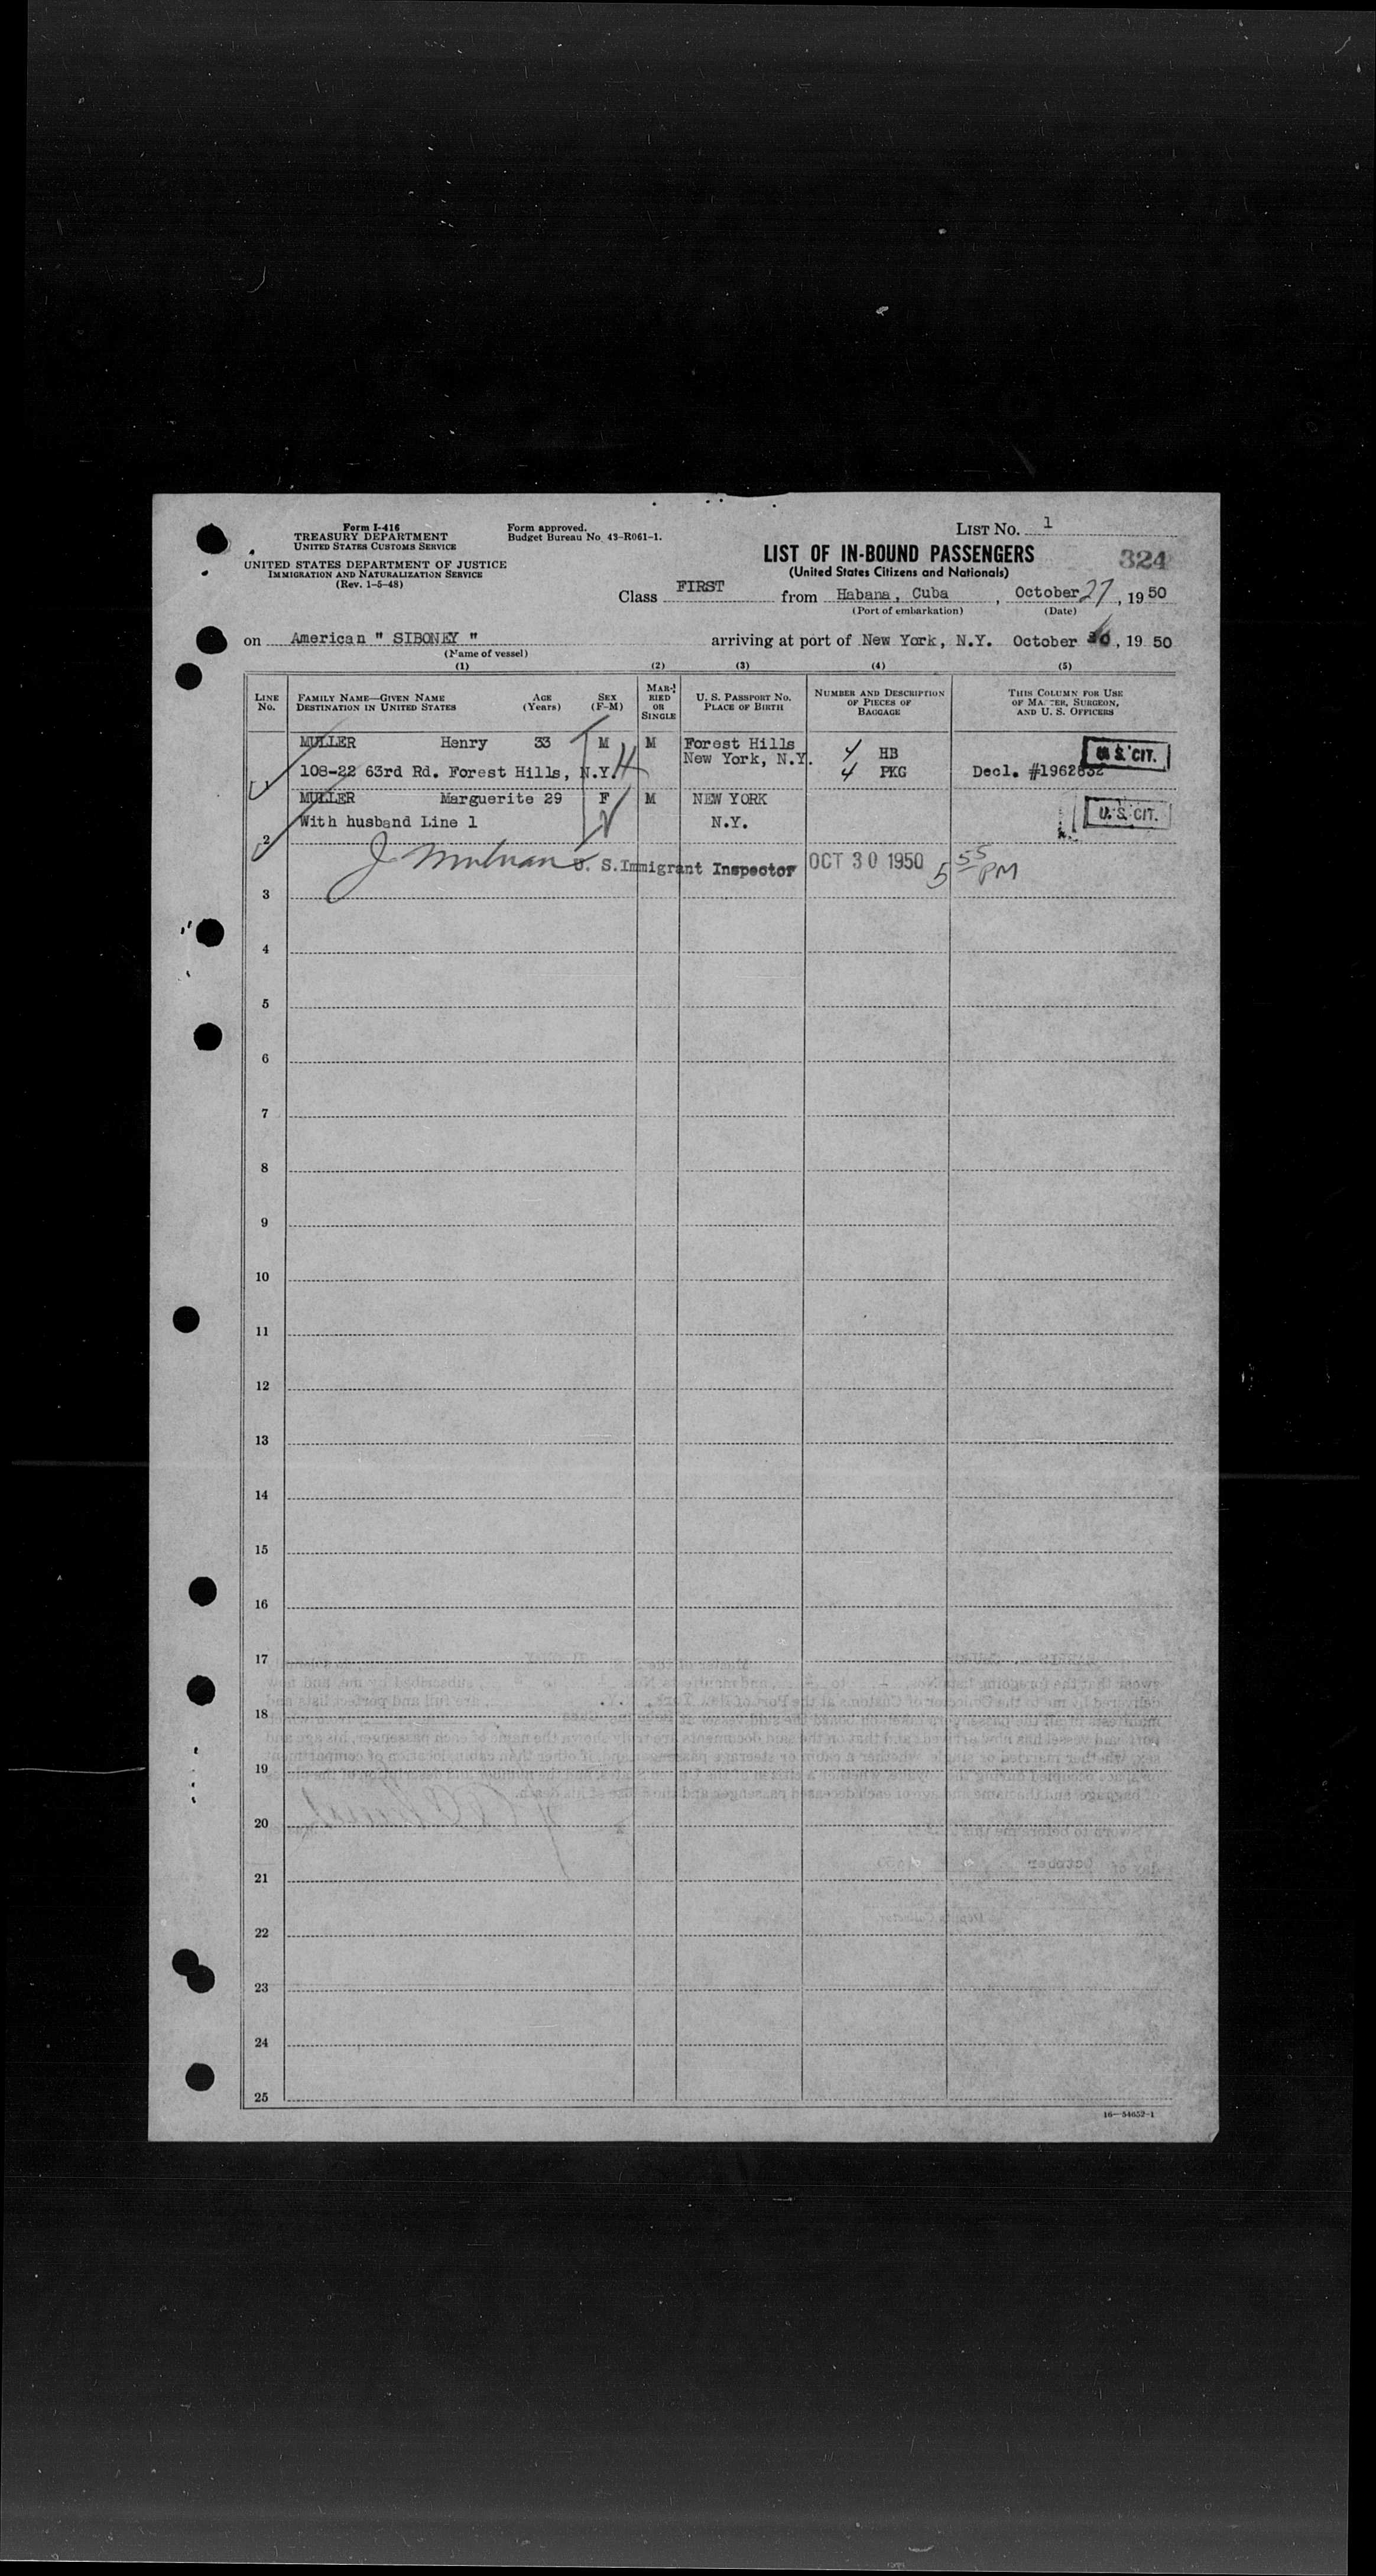 Form I-416
TREASURY DEPARTMENT
UNITED STATES CUSTOMS SERVICE
UNITED STATES DEPARTMENT OF JUSTICE
IMMIGRATION AND NATURALIZATION SERVICE
(Rev. 1-5-48)
Form approved.
Budget Bureau No. 43-R061-1.
LIST No. 1
LIST OF IN-BOUND PASSENGERS
324
(United States Citizens and Nationals)
Class FIRST from Habana, Cuba, October 27, 1950
(Port of embarkation) (Date)
on American " SIBONEY " arriving at port of New York, N.Y. October 30, 1950
(Name of vessel)
(1) (2) (3) (4) (5)
LINE No.
FAMILY NAME—GIVEN NAME
DESTINATION IN UNITED STATES
AGE
(Years)
SEX
(F-M)
MARRIED OR SINGLE
U. S. PASSPORT NO.
PLACE OF BIRTH
NUMBER AND DESCRIPTION
OF PIECES OF
BAGGAGE
THIS COLUMN FOR USE
OF MASTER, SURGEON,
AND U. S. OFFICERS
MULLER Henry 33 M M Forest Hills 4 HB U. S. CIT.
New York, N.Y.
1 108-22 63rd Rd. Forest Hills, N.Y. 4 PKG Decl. #1962832
MULLER Marguerite 29 F M NEW YORK U. S. CIT.
2 With husband Line 1 N.Y.
U. S. Immigrant Inspector OCT 30 1950 5 55 PM
3
4
5
6
7
8
9
10
11
12
13
14
15
16
17
18
19
20
21
22
23
24
25
16—54652-1